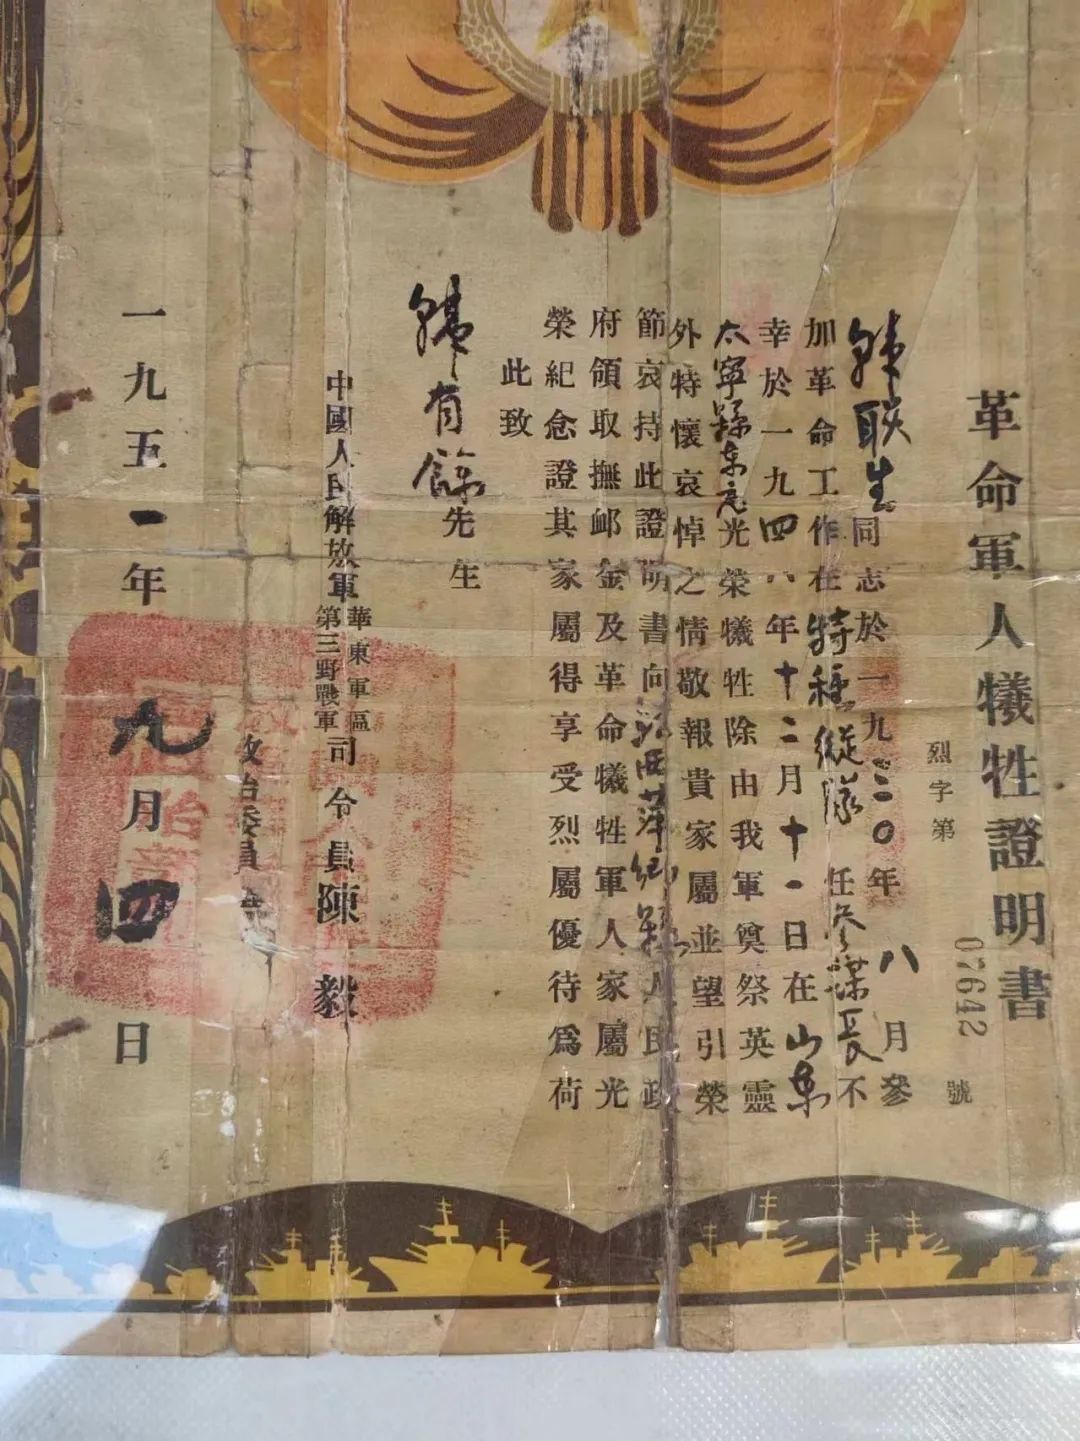 革命軍人犧牲證明書
烈字第 07642 號
韩联生同志於一九三〇年八月參
加革命工作在特种纵队任参谋長不
幸於一九四八年十二月十一日在山东
太寧縣东光榮犧牲除由我軍奠祭英靈
外特懷哀悼之情敬報貴家屬並望引榮
節哀持此證明書向江西萍鄉縣人民政
府領取撫卹金及革命犧牲軍人家屬光
榮紀念證其家屬得享受烈屬優待爲荷
此致
韩有餘先生
中國人民解放軍華東軍區第三野戰軍司令員陳毅
政治委員
一九五一年九月四日